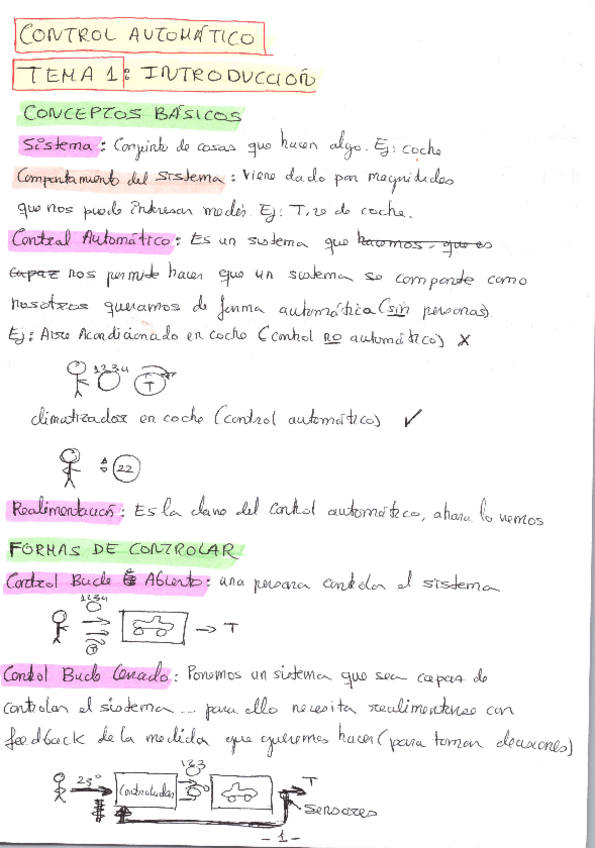 CONTROL AUTOMÁTICO
TEMA 1: INTRODUCCIÓN
CONCEPTOS BÁSICOS
Sistema: Conjunto de cosas que hacen algo. Ej: coche
Comportamiento del sistema: Viene dado por magnitudes
que nos puede interesar medir. Ej: T, v de coche.
Control Automático: Es un sistema que hacemos, que es
capaz nos permite hacer que un sistema se comporte como
nosotros queramos de forma automática (sin personas).
Ej: Aire Acondicionado en coche (control no automático) X
1 2 3 4 T
climatizador en coche (control automático) ✓
22
Realimentación: Es la clave del control automático, ahora lo vemos
FORMAS DE CONTROLAR
Control Bucle Abierto: una persona controla el sistema
1 2 3 4
→ T
T
Control Bucle Cerrado: Ponemos un sistema que sea capaz de
controlar el sistema ... para ello necesita realimentarse con
feedback de la medida que queremos hacer (para tomar decisiones)
1 2 3
23° Controlador T
Sensores
- 1 -